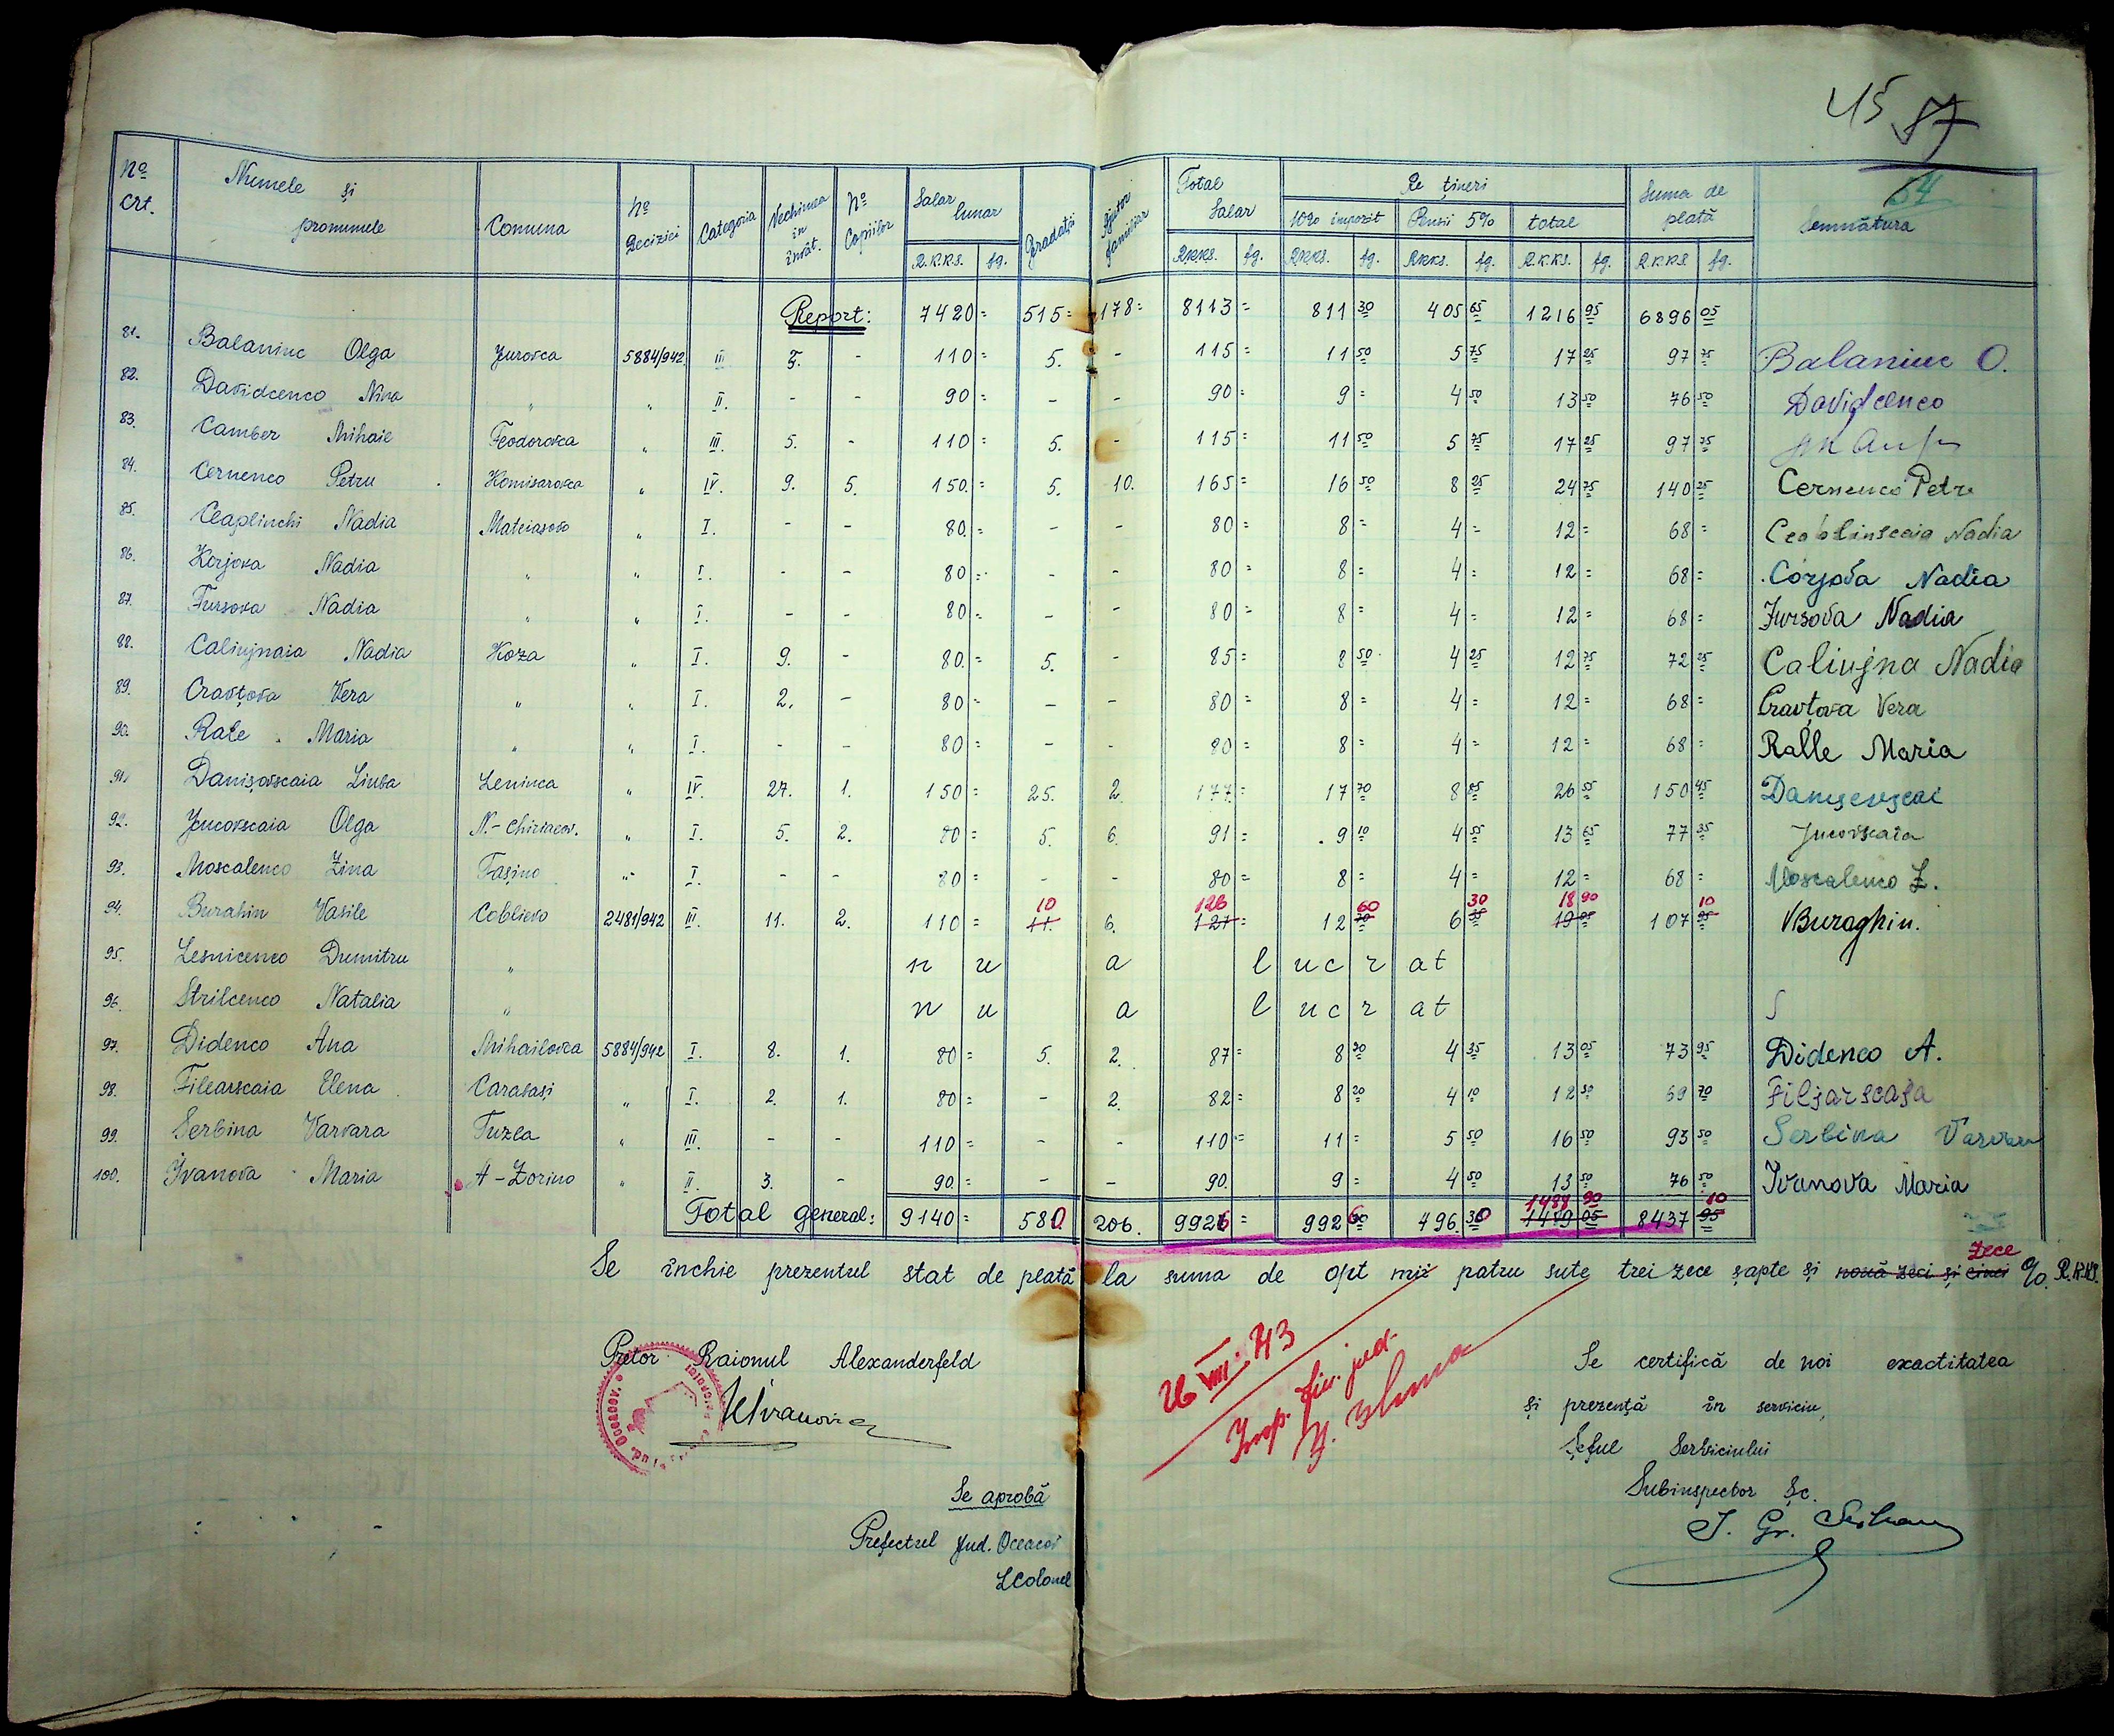 45 87
64
No Crt. Numele și pronumele Comuna No Deciziei Categoria Vechimea în învăt. No Copiilor Salar lunar Gradații Ajutor familiar Total Salar Re țineri Suma de plată Semnătura
10% impozit Pensii 5% total
R.K.K.S. fg. RKKS. fg. RKKS. fg. RKKS. fg. R.K.K.S. fg. R.K.K.S fg.
Report: 7420 = 515 = 178 = 8113 = 811 30 405 65 1216 95 6896 05
81. Balaniuc Olga Jurovca 5884/942 III 5. - 110 = 5. - 115 = 11 50 5 75 17 25 97 75 Balaniuc O.
82. Davidcenco Nina " " II. - - 90 = - - 90 = 9 = 4 50 13 50 76 50 Davidcenco
83. Camber Mihail Feodorovca " III. 5. - 110 = 5. - 115 = 11 50 5 75 17 25 97 75
84. Cernenco Petru Komisarovca " IV. 9. 5. 150. = 5. 10. 165 = 16 50 8 25 24 75 140 25 Cernenco Petru
85. Ceaplinchi Nadia Mateiasovo " I. - - 80. = - - 80 = 8 = 4 = 12 = 68 = Ceablinscaia Nadia
86. Korjova Nadia " " I. - - 80 = - - 80 = 8 = 4 = 12 = 68 = Corjova Nadia
87. Fursova Nadia " " I. - - 80 = - - 80 = 8 = 4 = 12 = 68 = Fursova Nadia
88. Caliujnaia Nadia Koza " I. 9. - 80. = 5. - 85 = 8 50 4 25 12 75 72 25 Caliujna Nadia
89. Cravțova Vera " " I. 2. - 80 = - - 80 = 8 = 4 = 12 = 68 = Cravțova Vera
90. Rale Maria " " I. - - 80 = - - 80 = 8 = 4 = 12 = 68 = Ralle Maria
91. Danișovscaia Liuba Leninca " IV. 27. 1. 150 = 25. 2. 177 = 17 70 8 85 26 55 150 45 Danișevscai
92. Jucovscaia Olga N.-chiriacov. " I. 5. 2. 80 = 5. 6. 91 = 9 10 4 55 13 65 77 35 Jucovscaia
93. Moscalenco Zina Tașino " I. - - 80 = - - 80 = 8 = 4 = 12 = 68 = Moscalenco Z.
10 126 60 30 18 90 10
94. Burahin Vasile Coblievo 2481/942 III. 11. 2. 110 = 11. 6. 127 = 12 70 6 35 19 05 107 95 VBuraghin.
95. Lesnicenco Dumitru " n u a l u c r a t
96. Strilcenco Natalia " n u a l u c r a t
97. Didenco Ana Mihailovca 5884/942 I. 8. 1. 80 = 5. 2. 87 = 8 70 4 35 13 05 73 95 Didenco A.
98. Filearscaia Elena Carabași " I. 2. 1. 80 = - 2. 82 = 8 20 4 10 12 30 69 70 Filjarscaja
99. Serbina Varvara Tuzla " III. - - 110 = - - 110 = 11 = 5 50 16 50 93 50 Serbina Varvara
100. Ivanova Maria A-Zorino " II. 3. - 90 = - - 90. 9 = 4 50 13 50 76 50 Ivanova Maria
1488 90 10
Total general: 9140 = 580 206. 9926 = 992 60 496 30 1489 05 8437 95
zece
Se închie prezentul stat de plată la suma de opt mii patru sute trei zece șapte și nouă zeci și cinci %. R.K.K.S.
Pretor Raionul Alexanderfeld
26 VIII. 43
Insp. fin. jud.
Se certifică de noi exactitatea
și prezență în serviciu,
Șeful Serviciului
Subinspector Șc.
Se aprobă
Prefectul Jud. Oceacov
LColonel